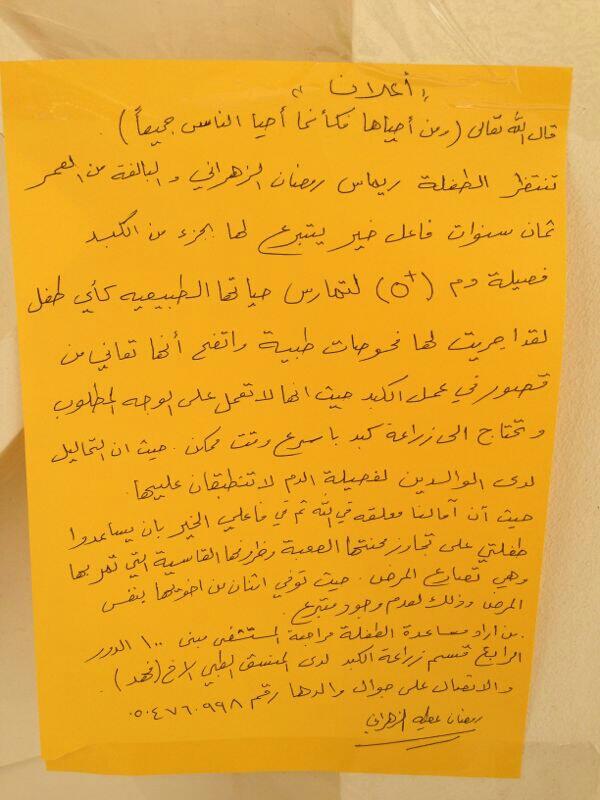 " أعلان "
قال الله تقالى (ومن أحياها فكأنما أحيا الناس جميعاً).
تنتظر الطفلة ريماس رمضان الزهراني والبالغة من العمر
ثمان سنوات فاعل خير يتبرع لها بجزء من الكبد
فصيلة دم (O+) لتمارس حياتها الطبيعيه كأي طفل
لقد اجريت لها فحوصات طبية واتضح أنها تعاني من
قصور في عمل الكبد حيث انها لا تعمل على الوجه المطلوب
وتحتاج الى زراعة كبد باسرع وقت ممكن . حيث ان التحاليل
لدى الوالدين لفصيلة الدم لا تنطبقان عليها.
حيث أن آمالنا معلقه في الله ثم في فاعلي الخير بان يساعدوا
طفلتي على تجاوز محنتها الصعبة وظروفها القاسية التي تمر بها
وهي تصارع المرض . حيث توفي اثنان من اخوتها بنفس
المرض وذلك لعدم وجود متبرع .
من اراد مساعدة الطفلة مراجعة المستشفى مبنى ١٠٠ الدور
الرابع قسم زراعة الكبد لدى المنسق الطبي الاخ (فهد) .
والاتصال على جوال والدها رقم ٠٥٠٤٧٦٠٩٩٨
رمضان عطيه الزهراني